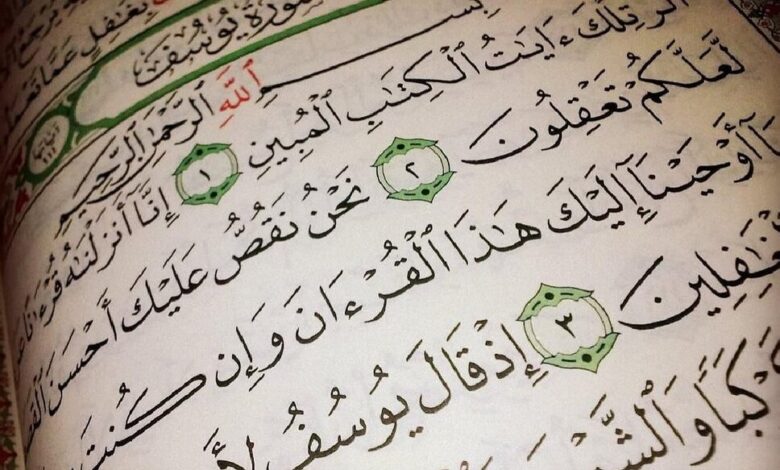 بِغَٰفِلٍ عَمَّا
سُورَةُ يُوسُفَ
بِسْمِ ٱللَّهِ ٱلرَّحْمَٰنِ ٱلرَّحِيمِ
الٓر تِلْكَ ءَايَٰتُ ٱلْكِتَٰبِ ٱلْمُبِينِ ١ إِنَّآ أَنزَلْنَٰهُ قُرْءَٰنًا
لَّعَلَّكُمْ تَعْقِلُونَ ٢ نَحْنُ نَقُصُّ عَلَيْكَ أَحْسَنَ
أَوْحَيْنَآ إِلَيْكَ هَٰذَا ٱلْقُرْءَانَ وَإِن كُنتَ
ٱلْغَٰفِلِينَ ٣ إِذْ قَالَ يُوسُفُ
كَبًا وَٱلشَّمْ